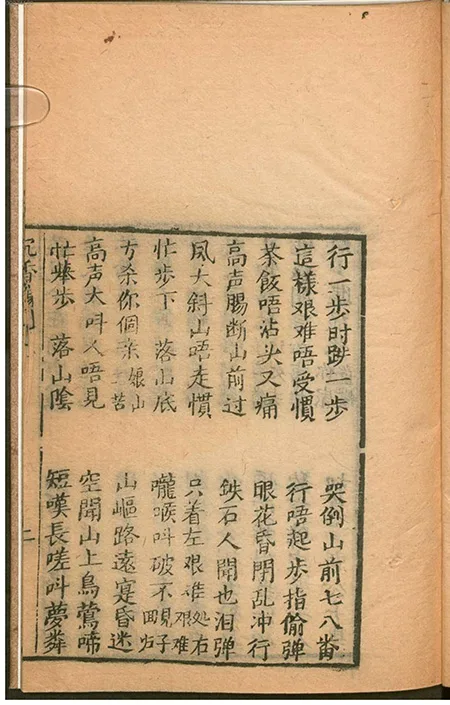 行一步时跌一步　哭倒山前七八番
這樣艰难唔受慣　行唔起步指偷弹
茶飯唔沾头又痛　眼花昏閇乱冲行
高声腸断山前过　鉄石人聞也泪弹
风大斜山唔走慣　只着左艰难处右艰难
忙步下　落山底　嚨喉呌破不見子回归
方杀你個亲娘山苦　山嶇路遠寔昏迷
高声大呌人唔見　空聞山上鳥鶯啼
忙舉步　落山陰　短嘆長嗟呌夢粦